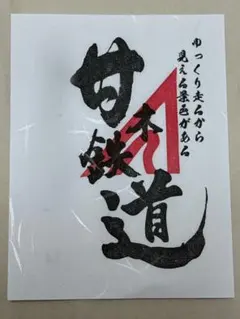 ゆっくり走るから
見える景色がある
甘木鉄道